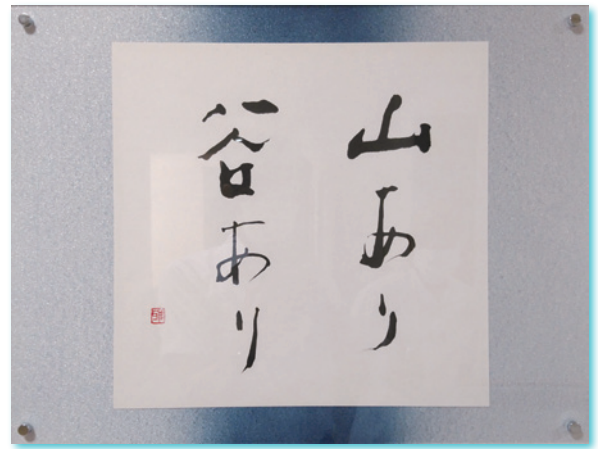 山あり
谷あり